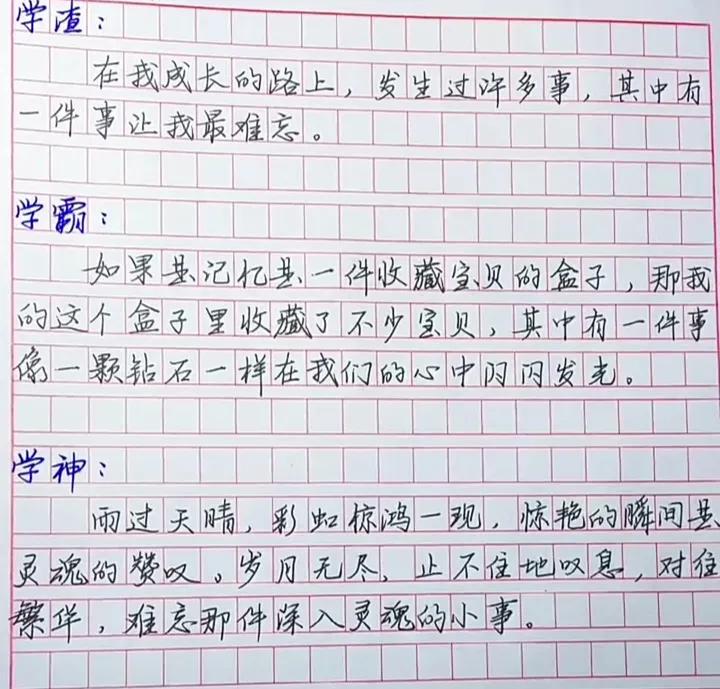 学渣：
在我成长的路上，发生过许多事，其中有
一件事让我最难忘。
学霸：
如果是记忆是一件收藏宝贝的盒子，那我
的这个盒子里收藏了不少宝贝，其中有一件事
像一颗钻石一样在我们的心中闪闪发光。
学神：
雨过天晴，彩虹惊鸿一现，惊艳的瞬间是
灵魂的赞叹。岁月无尽，止不住地叹息，对往
繁华，难忘那件深入灵魂的小事。